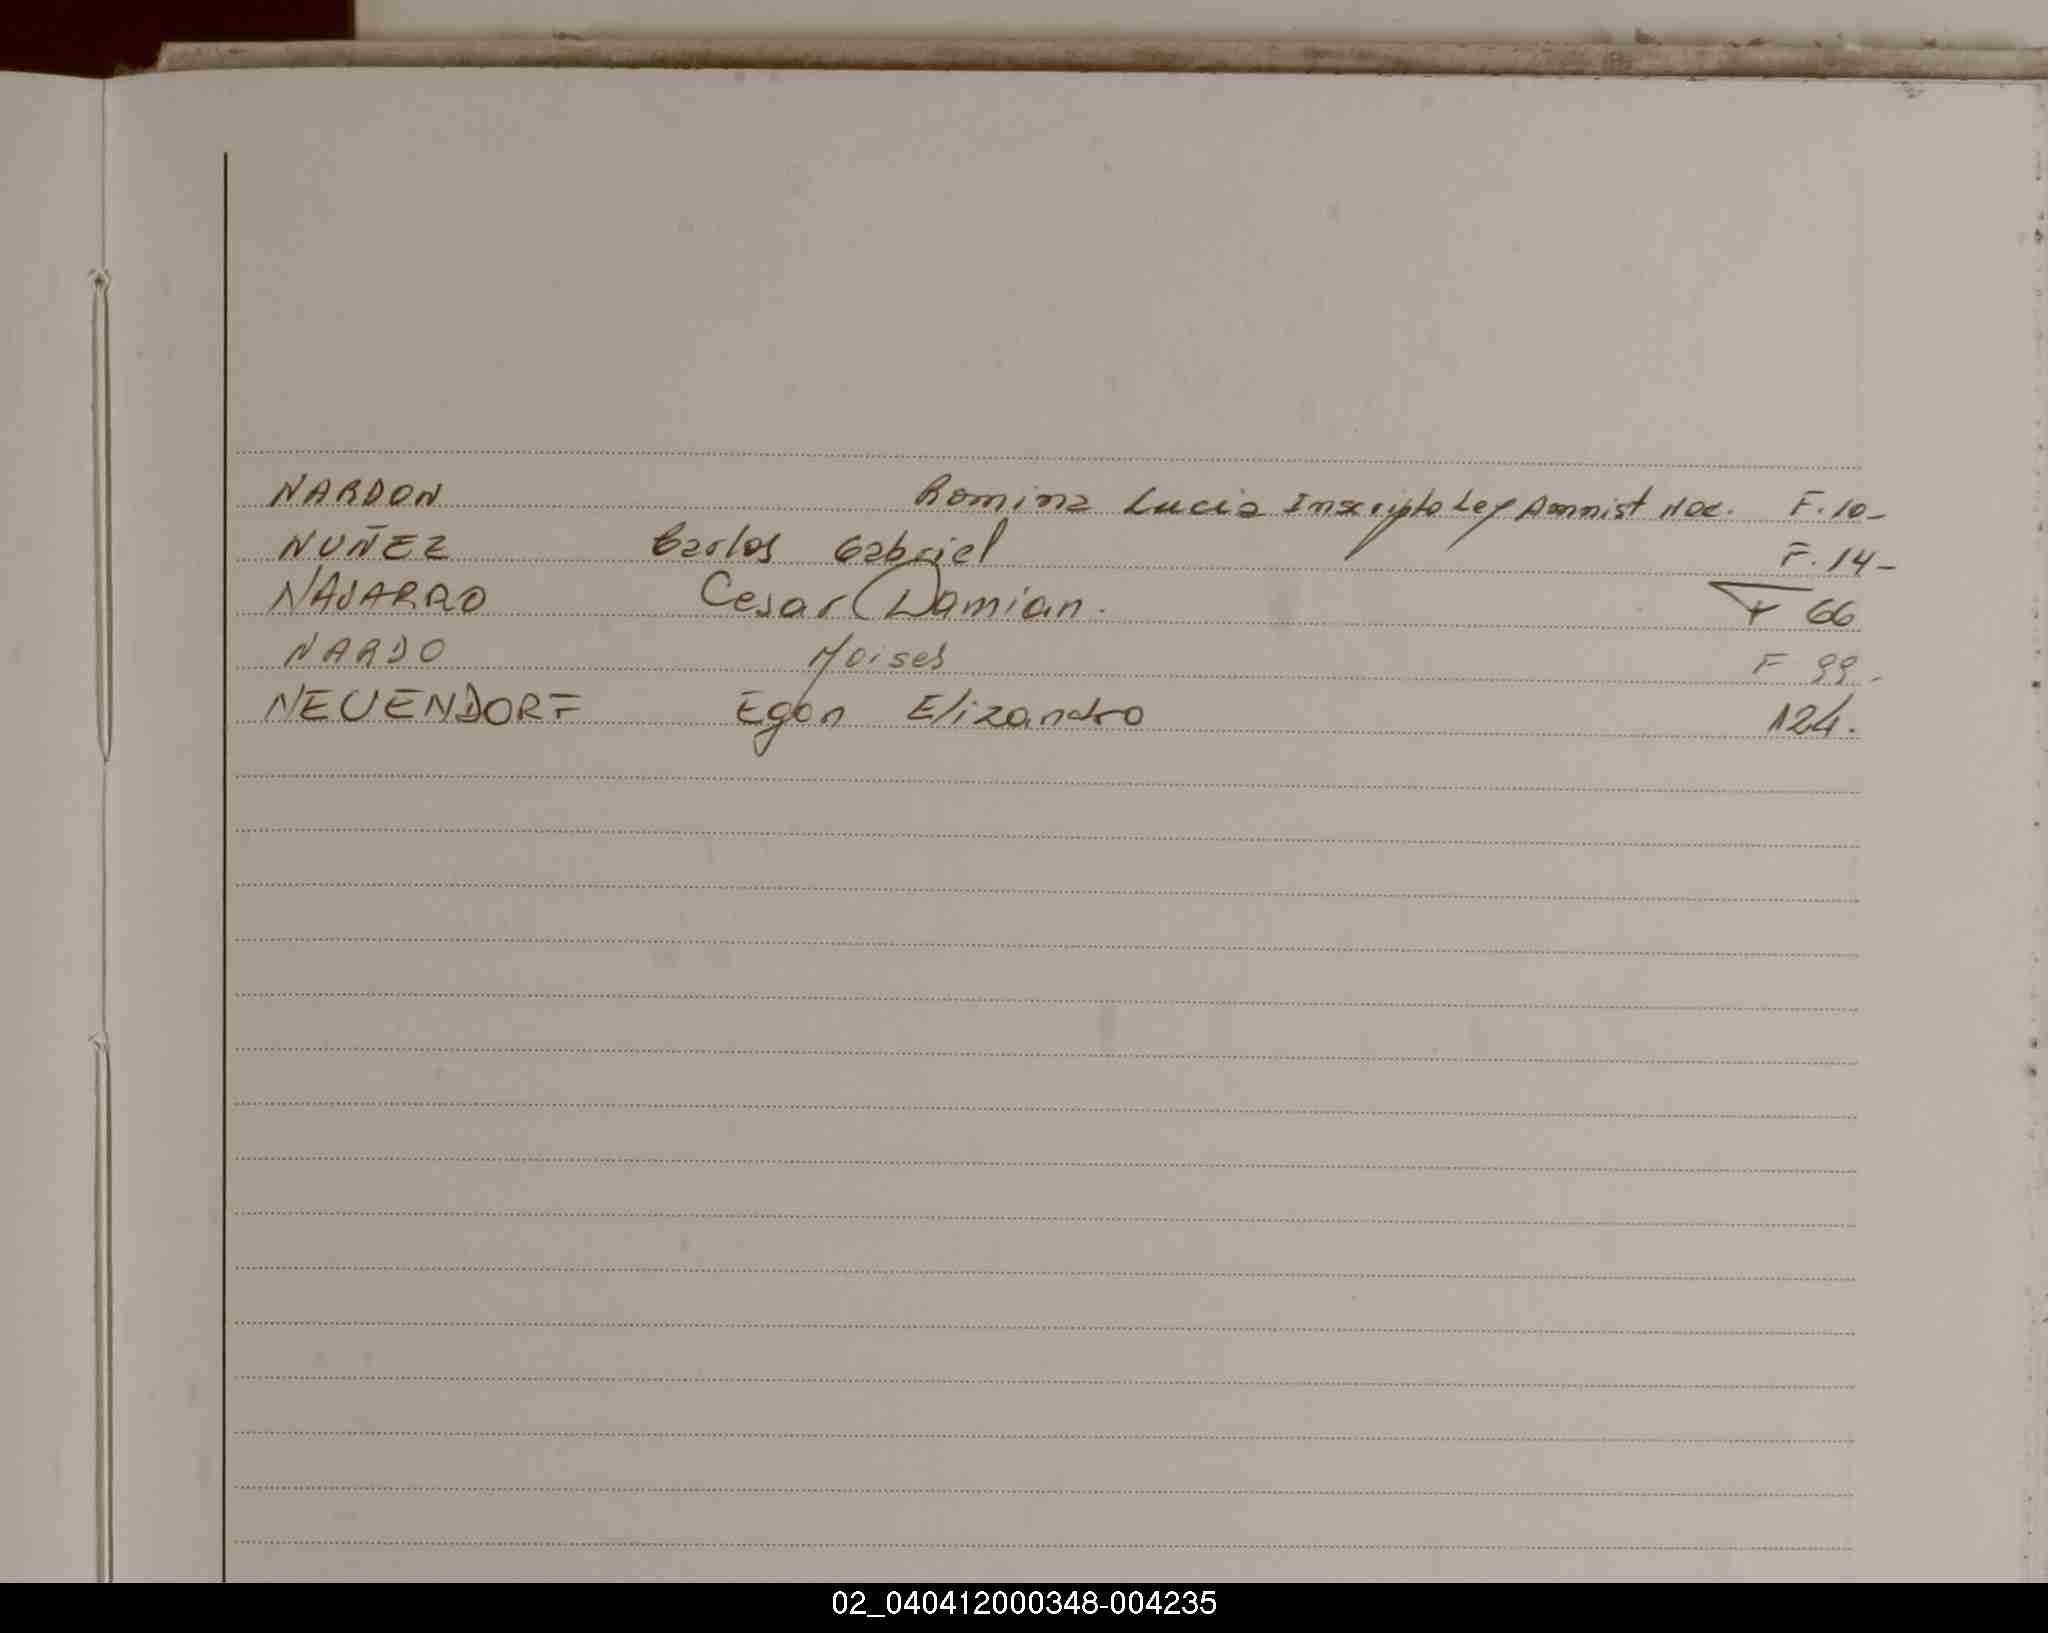 NARDON Romina Lucia Inscripto Ley Amnist Nac. F. 10-
NUÑEZ Carlos Gabriel F. 14-
NAJARRO Cesar Damian. F 66
NARDO Moises F 99-
NEUENDORF Egon Elizandro 124.
02_040412000348-004235